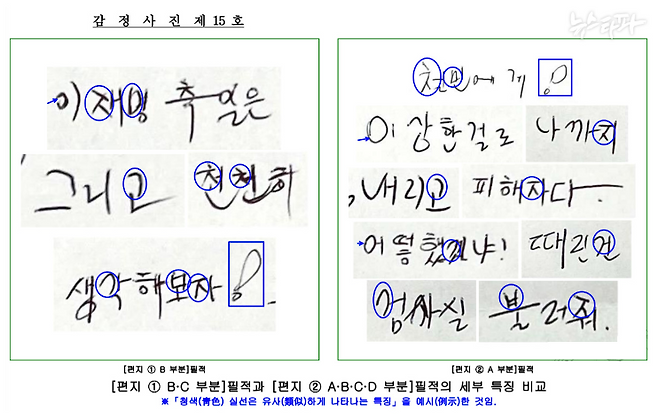 감 정 사 진 제 15 호
뉴스타파
이재명 축일은
그리고 천천히
생각해보자 !
천민에게 !
이상한걸로 나까지
, 내리고 피해자다.
어떻했겠냐! 때린건
엄사실 불러줘.
[편지 ① B 부분]필적
[편지 ② A 부분]필적
[편지 ① B·C 부분]필적과 [편지 ② A·B·C·D 부분]필적의 세부 특징 비교
※「청색(靑色) 실선은 유사(類似)하게 나타나는 특징」을 예시(例示)한 것임.